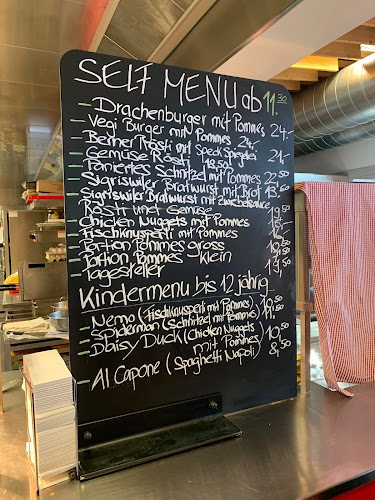 SELF MENU ab 11.30
- Drachenburger mit Pommes 24.-
- Vegi Burger mit Pommes 24.-
- Berner Rösti mit Speck Spiegelei 24.-
- Gemüse Rösti 18.50
- Paniertes Schnitzel mit Pommes 22.50
- Sigriswiler Bratwurst mit Brot 13.50
- Sigriswiler Bratwurst mit Zwiebelsauce
Rösti und Gemüse
- Chicken Nuggets mit Pommes
- Fischknusperli mit Pommes
- Portion Pommes gross
- Portion Pommes Klein
- Tagesteller 19.50
Kindermenu bis 12 jährig
- Nemo (Fischknusperli mit Pommes) 10.50
- Spiderman (Schnitzel mit Pommes) 11.50
- Daisy Duck (Chicken Nuggets
mit Pommes) 10.50
- Al Capone (Spaghetti Napoli) 8.50